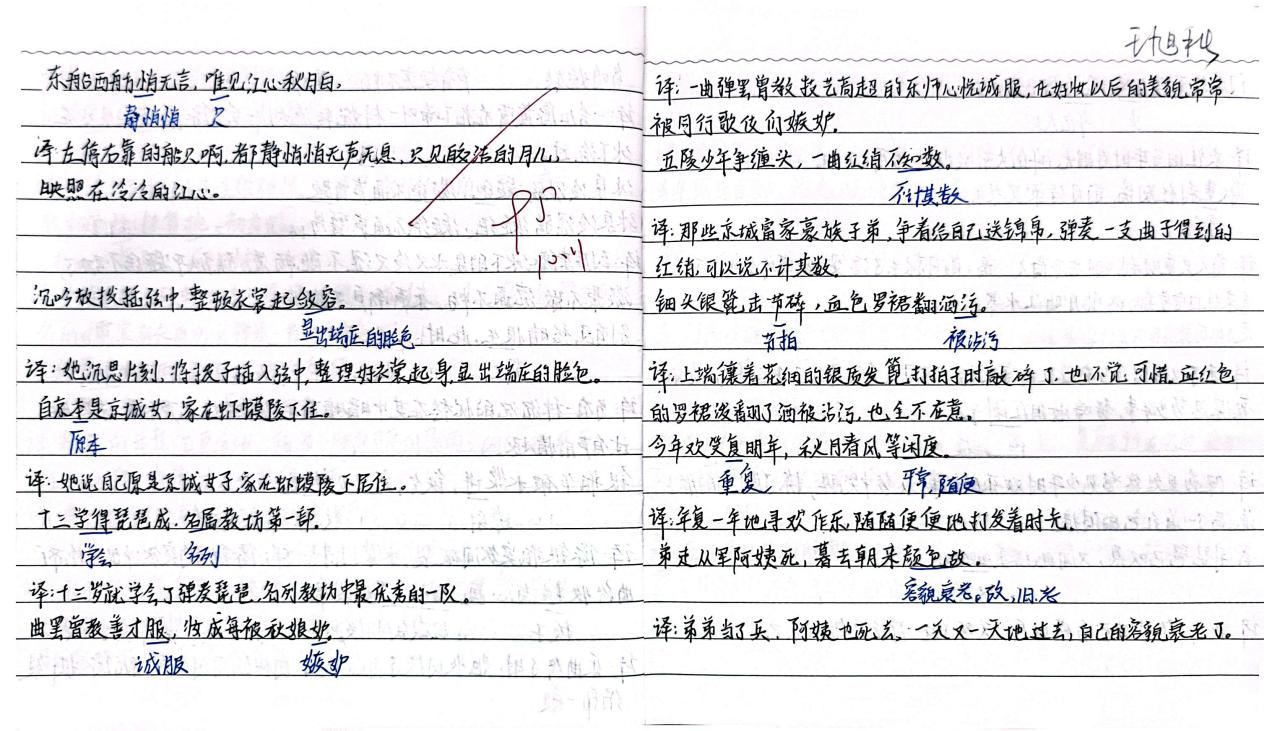 东船西舫悄无言，唯见江心秋月白。
静悄悄 只
译：左停右靠的船只啊，都静悄悄无声无息，只见皎洁的月儿，
映照在泠泠的江心。
95
10.24
沉吟放拨插弦中，整顿衣裳起敛容。
显出端庄的脸色
译：她沉思片刻，将拨子插入弦中，整理好衣裳起身，显出端庄的脸色。
自言本是京城女，家在虾蟆陵下住。
原本
译：她说自己原是京城女子，家在虾蟆陵下居住。
十三学得琵琶成，名属教坊第一部。
学会 名列
译：十三岁就学会了弹奏琵琶，名列教坊中最优秀的一队。
曲罢曾教善才服，妆成每被秋娘妒。
诚服 嫉妒
译：一曲弹罢曾教技艺高超的乐师心悦诚服，化好妆以后的美貌，常常
被同行歌伎们嫉妒。
五陵少年争缠头，一曲红绡不知数。
不计其数
译：那些京城富家豪族子弟，争着给自己送锦帛，弹奏一支曲子得到的
红绡，可以说不计其数。
钿头银篦击节碎，血色罗裙翻酒污。
节拍 被沾污
译：上端镶着花钿的银质发篦，打拍子时敲碎了，也不觉可惜。血红色
的罗裙泼翻了酒被沾污，也全不在意。
今年欢笑复明年，秋月春风等闲度。
重复 平常，随便
译：年复一年地寻欢作乐，随随便便地打发着时光。
弟走从军阿姨死，暮去朝来颜色故。
容貌衰老。故，旧，老
译：弟弟当了兵，阿姨也死去，一天又一天地过去，自己的容貌衰老了。